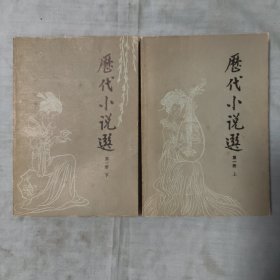 歷代小说選
第一册 下
歷代小说選
第一册 上